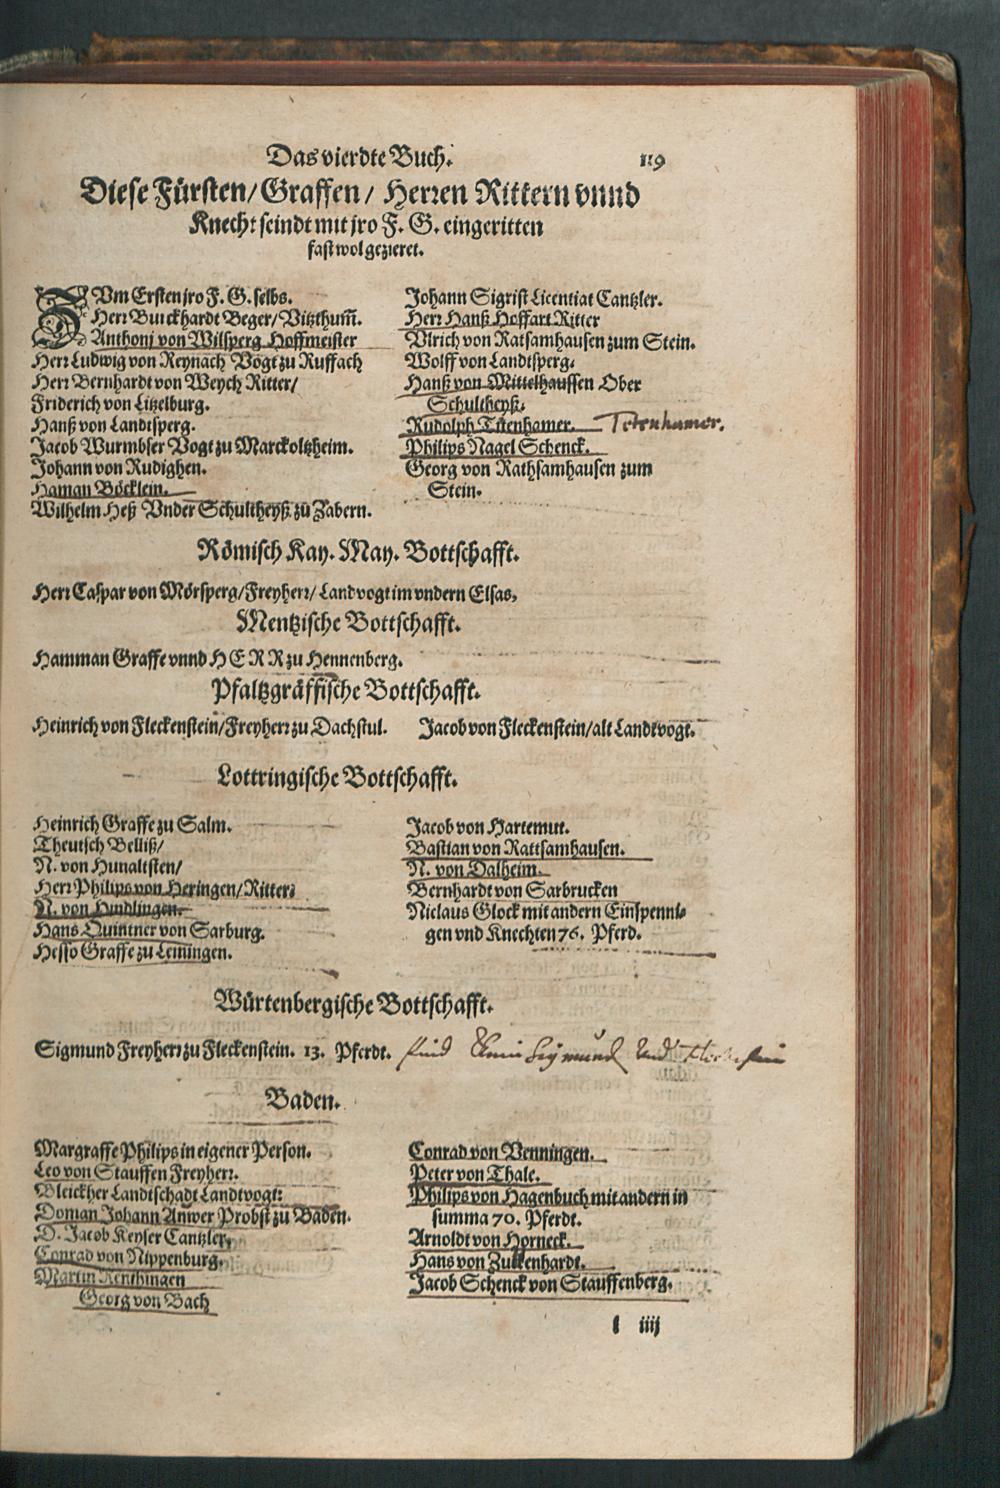 Das vierdte Buch.
119
Diese Fürsten/ Graffen/ Herren Rittern vnnd
Knecht seindt mit jro F. G. eingeritten
fast wol gezieret.
ZVm Ersten jro F. G. selbs.
Herr Burckhardt Beger/ Vitzthum̃.
Anthonj von Wilsperg Hoffmeister
Herr Ludwig von Reynach Vogt zu Ruffach
Herr Bernhardt von Weych Ritter/
Friderich von Litzelburg.
Hanß von Landtsperg.
Jacob Wurmbser Vogt zu Marckoltzheim.
Johann von Rudighen.
Haman Böcklein.
Wilhelm Heß Vnder Schultheyß zů Zabern.
Johann Sigrist Licentiat Cantzler.
Herr Hanß Hoffart Ritter
Vlrich von Ratsamhausen zum Stein.
Wolff von Landtsperg.
Hanß von Mittelhaussen Ober
Schultheyß.
Rudolph Titenhamer. Tetenhamer.
Philips Nagel Schenck.
Georg von Rathsamhausen zum
Stein.
Römisch Kay. May. Bottschafft.
Herr Caspar von Mörsperg/ Freyherr/ Landvogt im vndern Elsas,
Mentzische Bottschafft.
Hamman Graffe vnnd HERR zu Hennenberg.
Pfaltzgräffische Bottschafft.
Heinrich von Fleckenstein/ Freyherr zu Dachstul. Jacob von Fleckenstein/ alt Landtvogt.
Lottringische Bottschafft.
Heinrich Graffe zu Salm.
Theutsch Belliß/
N. von Hunaltsten/
Herr Philips von Heringen/ Ritter:
N. von Hindlingen.
Hans Quintner von Sarburg.
Hesso Graffe zu Leiningen.
Jacob von Hartemut.
Bastian von Rattsamhausen.
N. von Dalheim.
Bernhardt von Sarbrucken
Niclaus Glock mit andern Einspenni-
gen vnd Knechten 76. Pferd.
Würtenbergische Bottschafft.
Sigmund Freyherr zu Fleckenstein. 13. Pferdt. Sigmund
Baden.
Margraffe Philips in eigener Person.
Leo von Stauffen Freyherr.
Bleickher Landtschadt Landtvogt:
Doman Johann Anwer Probst zu Baden.
D. Jacob Keyser Cantzler,
Conrad von Nippenburg.
Martin Renchingen
Georg von Bach
Conrad von Venningen.
Peter von Thale.
Philips von Hagenbuch mit andern in
summa 70. Pferdt.
Arnoldt von Horneck.
Hans von Zuttenhardt.
Jacob Schenck von Stauffenberg.
l iiij